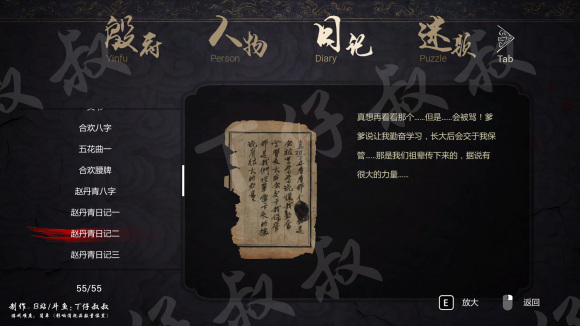 殷府
Yinfu
人物
Person
日记
Diary
迷踪
Puzzle
Tab
合欢八字
五花曲一
合欢腰牌
赵丹青八字
赵丹青日记一
赵丹青日记二
赵丹青日记三
55/55
真想再看看那个.....但是.....会被骂！爹
爹说让我勤奋学习，长大后会交于我保
管.....那是我们祖辈传下来的，据说有
很大的力量.....
E 放大
返回
制作：B站/斗鱼：丁仔叔叔
丁仔叔叔